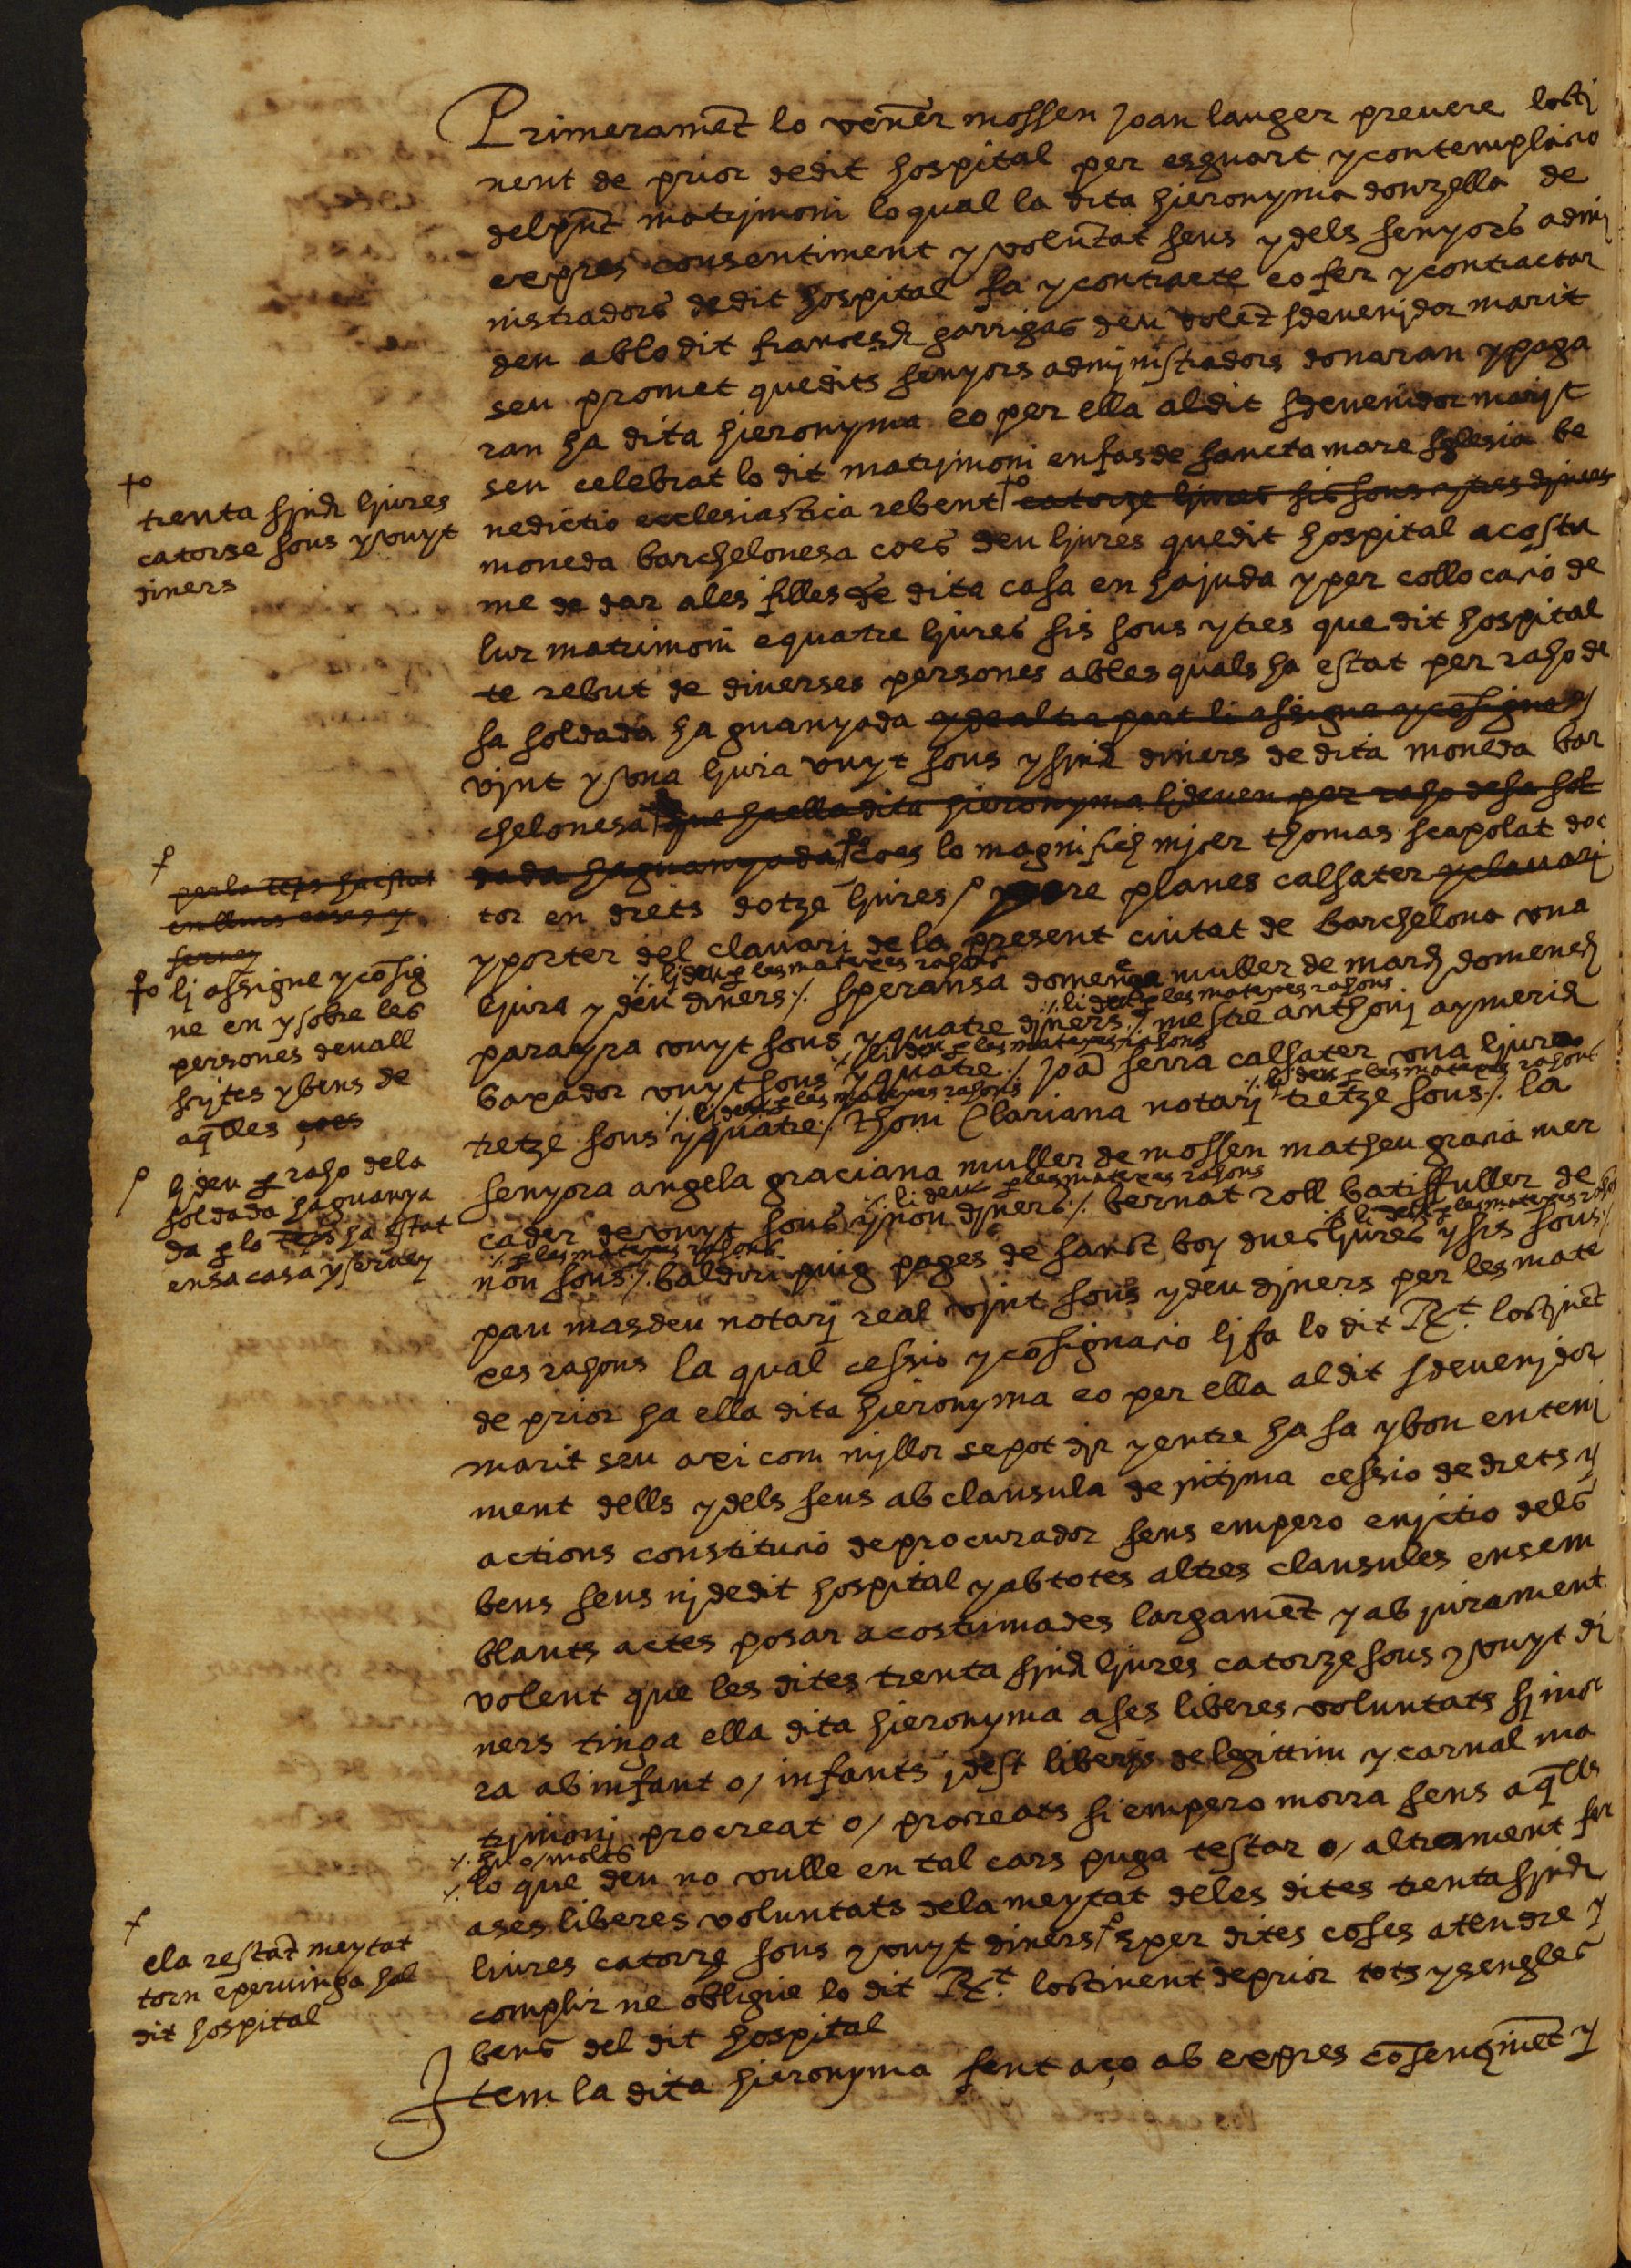 Primerament lo vener mossen Joan lauger preuere locti
nent de prior dedit hospital per esguart y contemplacio
del pnt matrjmoni lo qual la dita hieronyma donzella de
expres consentiment y voluntat seus y dels senyors admj
nistradors de dit hospital fa y contracte eo fer y contractar
deu ab lo dit francesch garrigas deu volent sdeuenjdor marit
seu promet que dits senyors admjnistradors donaran y paga
ran ha dita hieronyma eo per ella al dit sdeuenidor marjt
seu celebrat lo dit matrjmoni en fas de sancta mare sglesia be
nedictio ecclesiastica rebent catorze ljures sis sous y tres djners
moneda barchelonesa coes deu ljures que dit hospital acostu
me de dar a les filles de dita casa en hajuda y per collocacio de
lur matrimoni e quatre ljures sis sous y tres que dit hospital
te rebut de diuerses persones ab les quals ha estat per raho de
sa soldada ha guanyada y de altra part li assigne y cosigne
vjnt y vna ljura vuyt sous y sjnch diners de dita moneda bar
chelonesa que ha ella dita hieronyma lj deuen per raho de sa sol
dada ha guanyada coes lo magnifich mjcer thomas scapolat doc
tor en drets dotze ljures / pere planes calsater y clauarj
y porter del clauari de la present ciutat de barchelona vna
·/. lj deu p les matexes rahons
ljura y deu diners ·/. speransa domenega muller de march domenech
·/. li deu p les matexes rahons
parayra vuyt sous y quatre djners ·/. mestre anthonj aymerich
·/. li deu p les matexes rahons
baxador vuyt sous y quatre / Joã serra calsater vna ljura
·/. lj deu p les matexes rahons ·/. li deu p les matexes rahons
tretze sous y quatre / Thom Clariana notarj tretze sous ·/. la
senyora angela graciana muller de mossen matheu gracia mer
·/. li deu p les matexes rahons
cader de vuyt sous y nou djners ·/. bernat roll batiffuller de
·/. p les matexes rahons ·/. li deu p les matexes rahos
nou sous ·/. baldiri puig pages de sanct boy dues ljures y sis sous ·/.
pau masdeu notarj real vjnt sous y deu djners per les mate
xes rahons la qual cessio y cosignacio lj fa lo dit Rt. loctjnet
de prior ha ella dita hieronyma eo per ella al dit sdeuenjdor
marit seu axi com mjllor se pot djr y entre ha sa y bon entenj
ment dells y dels seus ab clausula de jntjma cessio de drets y
actions constitucio de procurador sens empero euictio dels
bens seus nj de dit hospital y ab totes altres clausules en sem
blants actes posar acostumades largamet y ab jurament
volent que les dites trenta sjnch ljures catorze sous y vuyt di
ners tinga ella dita hieronyma a ses liberes voluntats sj mor
ra ab infant o / infants jdest liberjs de legittim y carnal ma
trjmonj procreat o / procreats si empero morra sens aqlls
·/. hu o / molts
·/. lo que deu no vulle en tal cars puga testar o / altrament fer
a ses liberes voluntats de la meytat de les dites trenta sjnch
liures catorze sous y vuyt diners E per dites coses atendre y
complir ne obligue lo dit Rt. loctinent de prior tots y sengles
bens del dit hospital
Item la dita hieronyma fent aço ab expres cosentjmet y
to
trenta sjnch ljures
catorse sous y vuyt
diners
per lo teps ha estat
en llurs cases y
seruey
to lj assigne y cosig
ne en y sobre les
persones deuall
scrjtes y bens de
aqlles coes
lj deu p raho de la
soldada ha guanya
da p lo teps ha estat
en sa casa y seruey
e la restat meytat
torn e peruinga hal
dit hospital